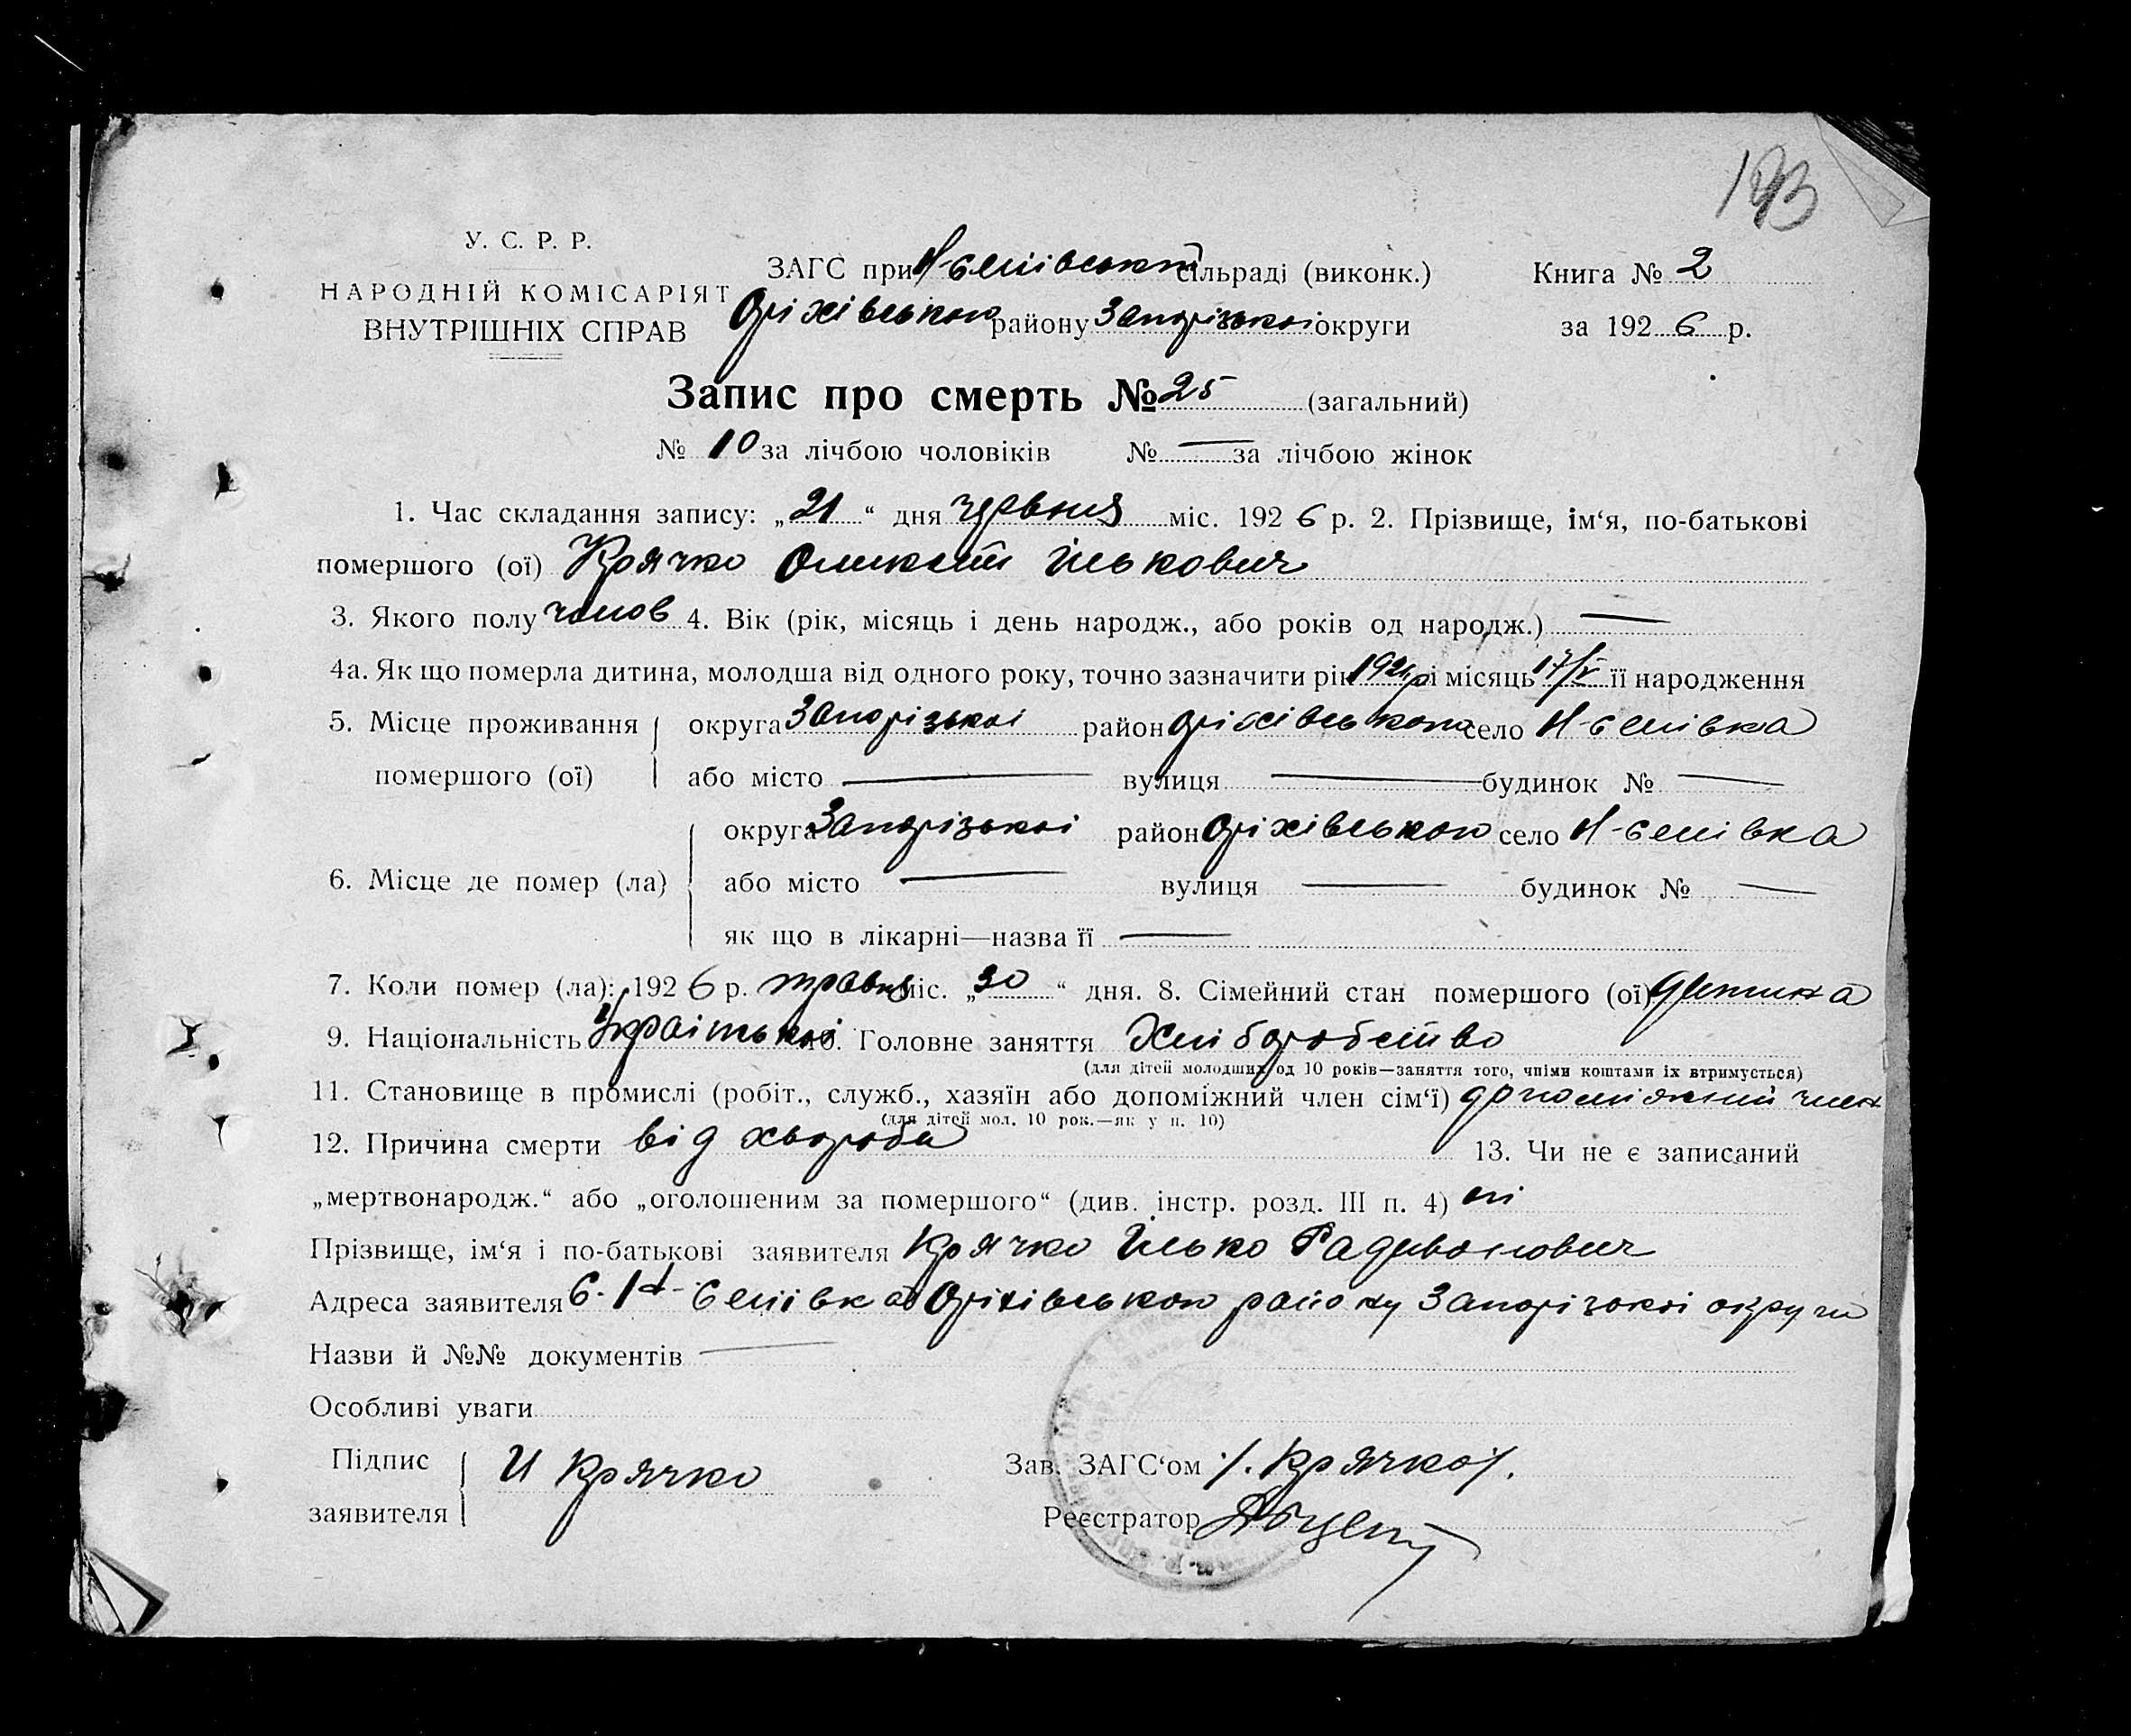 У. С. Р. Р.
НАРОДНІЙ КОМІСАРІЯТ
ВНУТРІШНІХ СПРАВ
ЗАГС при сільраді (виконк.)
Оріхівського району Запорізької округи
Книга № 2
за 1926 р.
Запис про смерть № 25 (загальний)
№ 10 за лічбою чоловіків № — за лічбою жінок
1. Час складання запису: „21“ дня червня міс. 1926 р. 2. Прізвище, ім‘я, по-батькові
помершого (ої) Крячко Олексій Ількович
3. Якого полу чолов 4. Вік (рік, місяць і день народж., або років од народж.) —
4а. Як що померла дитина, молодша від одного року, точно зазначити рік і місяць 17/V її народження
5. Місце проживання помершого (ої) округа Запорізької район Оріхівського село Н-Єлнівка
або місто — вулиця — будинок № —
6. Місце де помер (ла) округа Запорізької район Оріхівського село Н-Єлнівка
або місто — вулиця — будинок № —
як що в лікарні—назва її —
7. Коли помер (ла): 1926 р. травня міс. „30“ дня. 8. Сімейний стан помершого (ої) дитина
9. Національність Українській 10. Головне заняття Хліборобство
(для дітей молодших од 10 років—заняття того, чиїми коштами їх втримується)
11. Становище в промислі (робіт., служб., хазяїн або допоміжний член сім‘ї) допоміжний член
(для дітей мол. 10 рок.—як у п. 10)
12. Причина смерти від хвороби 13. Чи не є записаний
„мертвонародж.“ або „оголошеним за помершого“ (див. інстр. розд. III п. 4) ні
Прізвище, ім‘я і по-батькові заявителя Крячко Ілько Радивонович
Адреса заявителя Оріхівського району Запорізької округи
Назви й №№ документів —
Особливі уваги
Підпис заявителя И Крячко
Зав. ЗАГС‘ом /. Крячко/.
Реєстратор